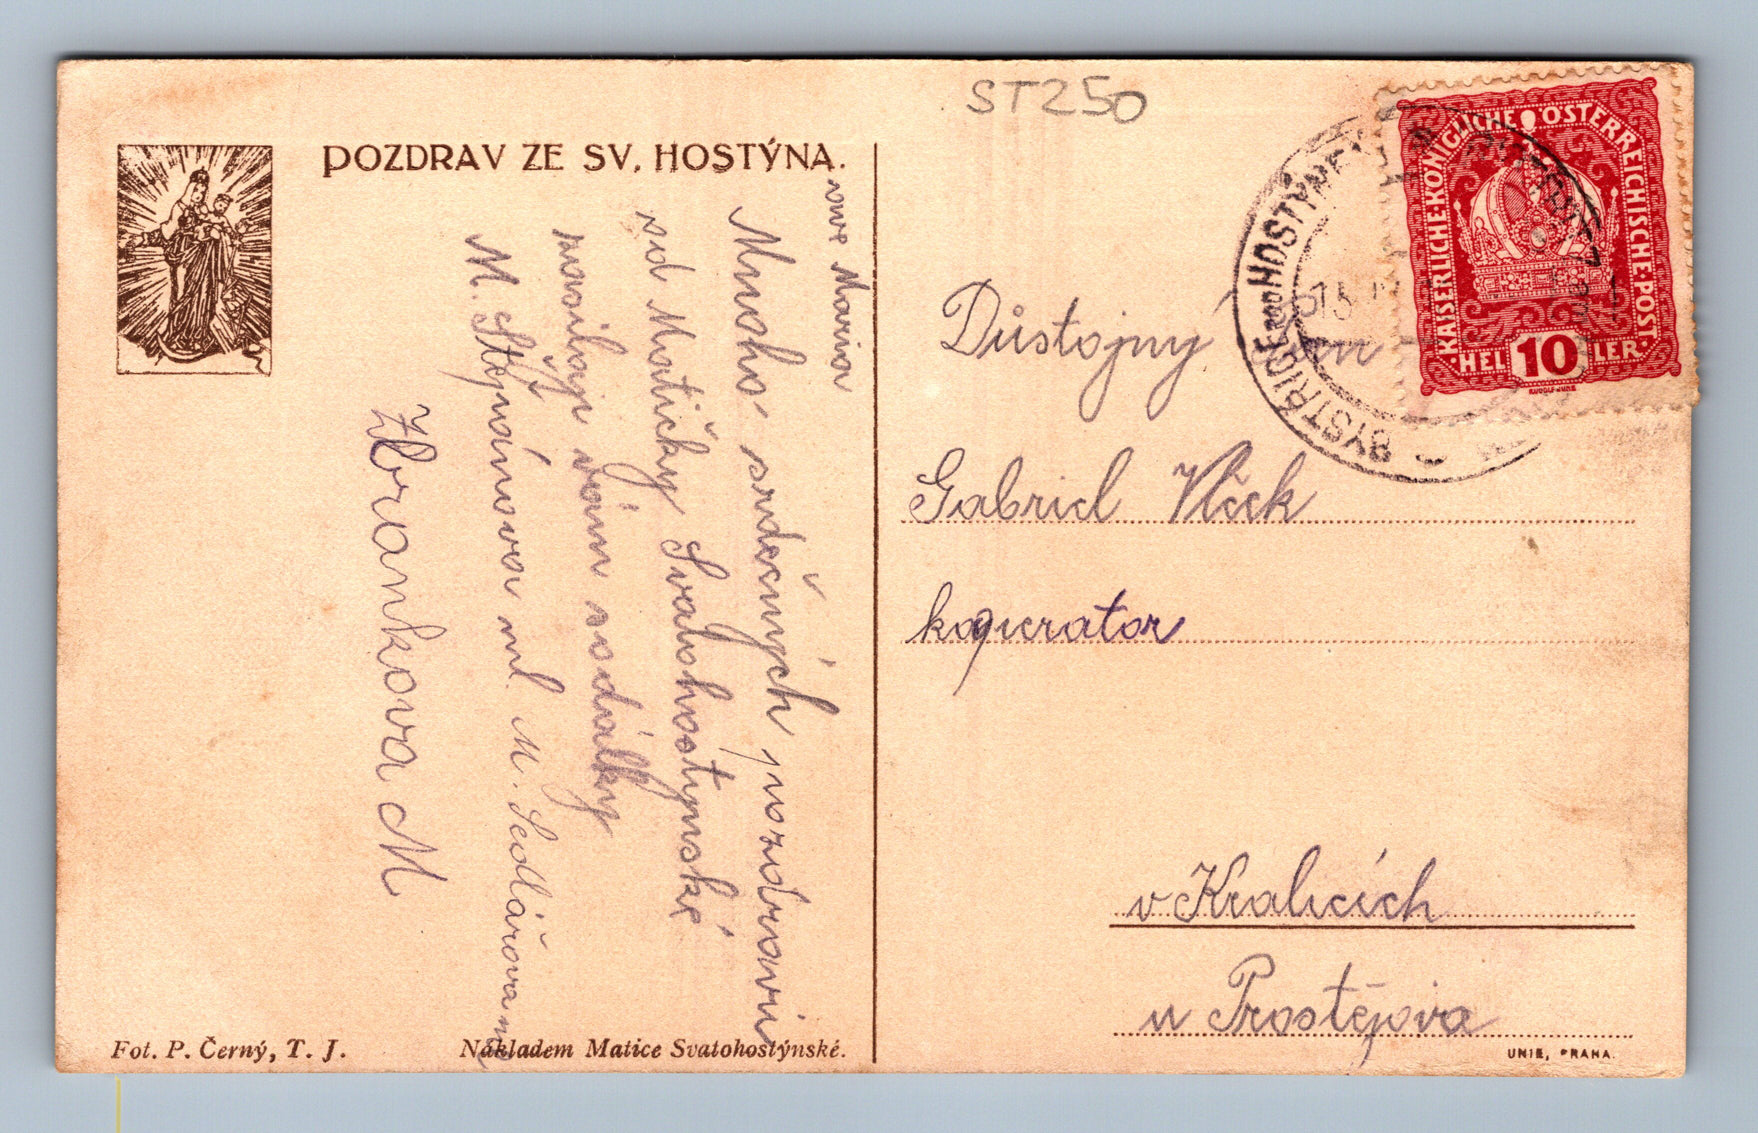 ST250
POZDRAV ZE SV. HOSTÝNA.
Maria
Mnoho srdečných pozdravů
od Matičky Svatohostýnské
posílají vám sodálky
M. Štěpánová ml. M. Sedlářova
Zbrankova M
Fot. P. Černý, T. J.
Nákladem Matice Svatohostýnské.
KAISERLICHE·KÖNIGLICHE ÖSTERREICHISCHE·POST·
HELLER
10
BYSTŘICE POD HOSTÝNEM
15
Důstojný pan
Gabriel Vlček
kooperator
v Kralicích
u Prostějova
UNIE, PRAHA.